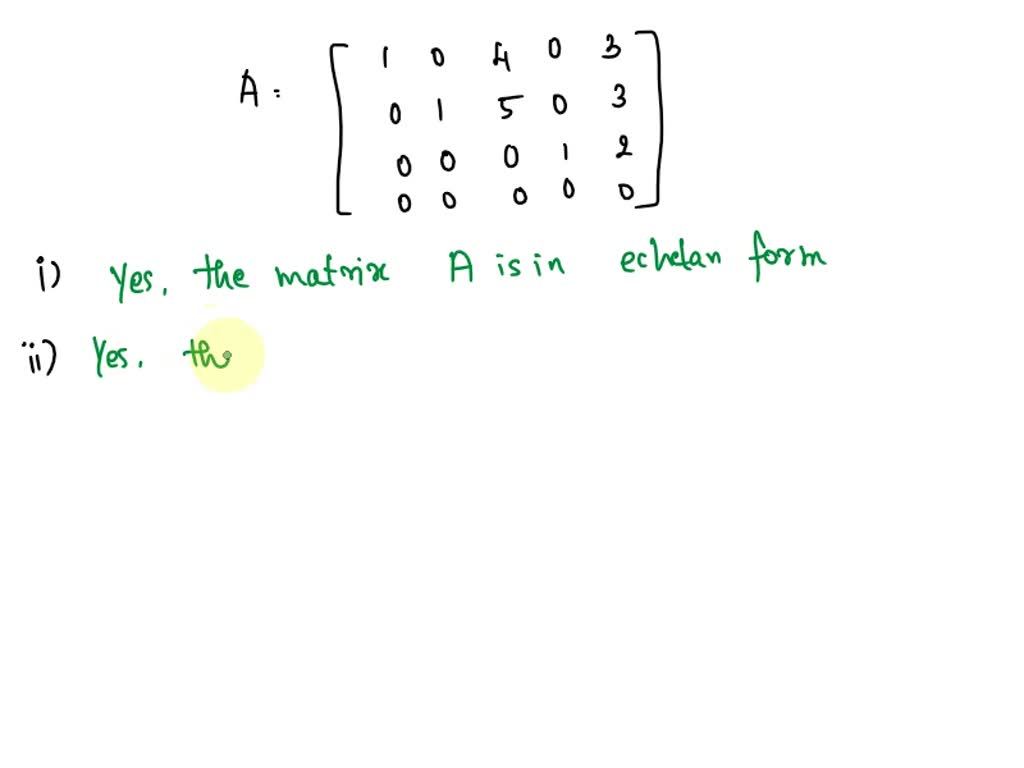 A = [ 1 0 4 0 3
0 1 5 0 3
0 0 0 1 2
0 0 0 0 0 ]
i) Yes, the matrix A is in echelan form
ii) Yes, th